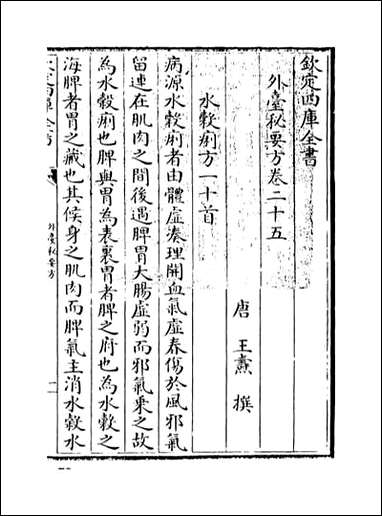 欽定四庫全書
外臺秘要方卷二十五
唐 王燾 撰
水穀痢方一十首
病源水穀痢者由體虛湊理開血氣虛春傷於風邪氣
留連在肌肉之間後遇脾胃大腸虛弱而邪氣乘之故
為水穀痢也脾與胃為表裏胃者脾之府也為水穀之
海脾者胃之藏也其候身之肌肉而脾氣主消水穀水
外臺秘要方